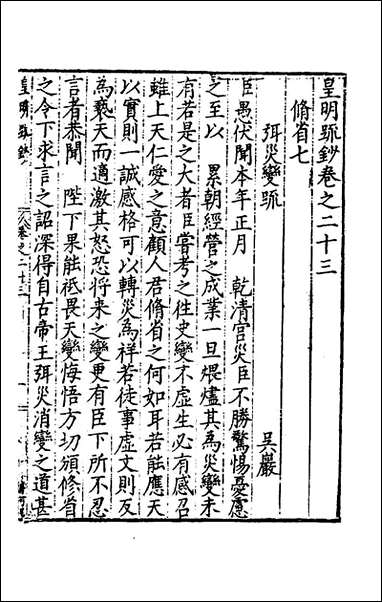 皇明疏鈔卷之二十三
脩省七
弭災變疏　吳嚴
臣愚伏聞本年正月　乾清宮災臣不勝驚惕憂慮
之至以　累朝經營之成業一旦煨燼其為災變未
有若是之大者臣嘗考之徃史變不虛生必有感召
雖上天仁愛之意顧人君脩省之何如耳若能應天
以實則一誠感格可以轉災為祥若徒事虛文則反
為褻天而適激其怒恐將來之變更有臣下所不忍
言者恭聞　陛下果能祗畏天變悔悟方切頒修省
之令下求言之詔深得自古帝王弭災消變之道甚
皇明疏鈔　卷之二十三